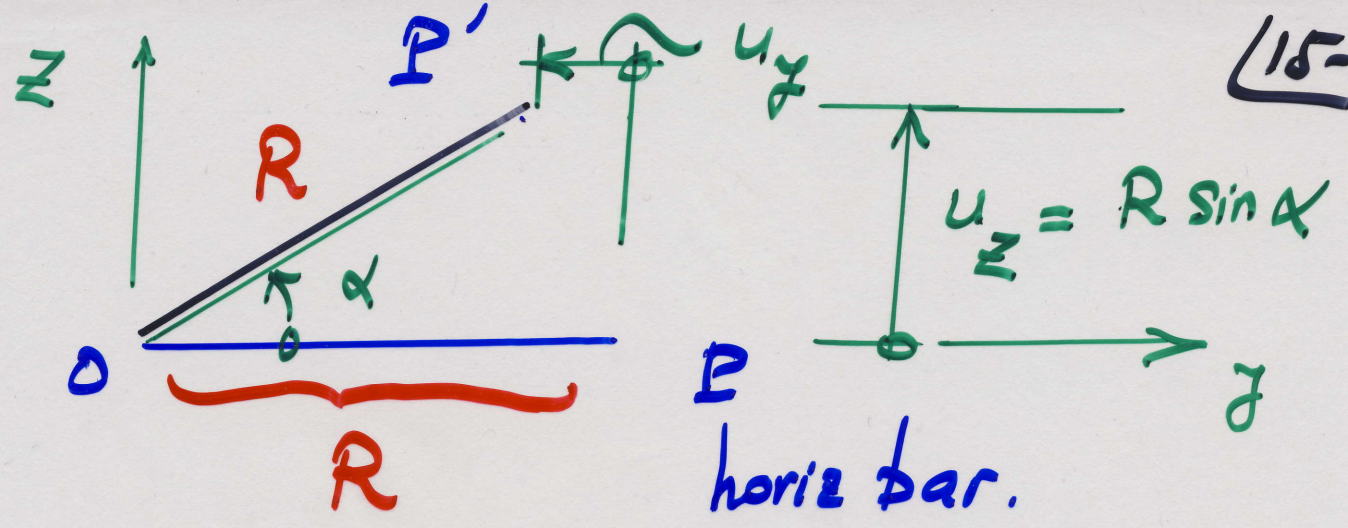 Z
P'
u_y
15-
R
u_z = R sin α
α
O
P
y
R
horiz bar.